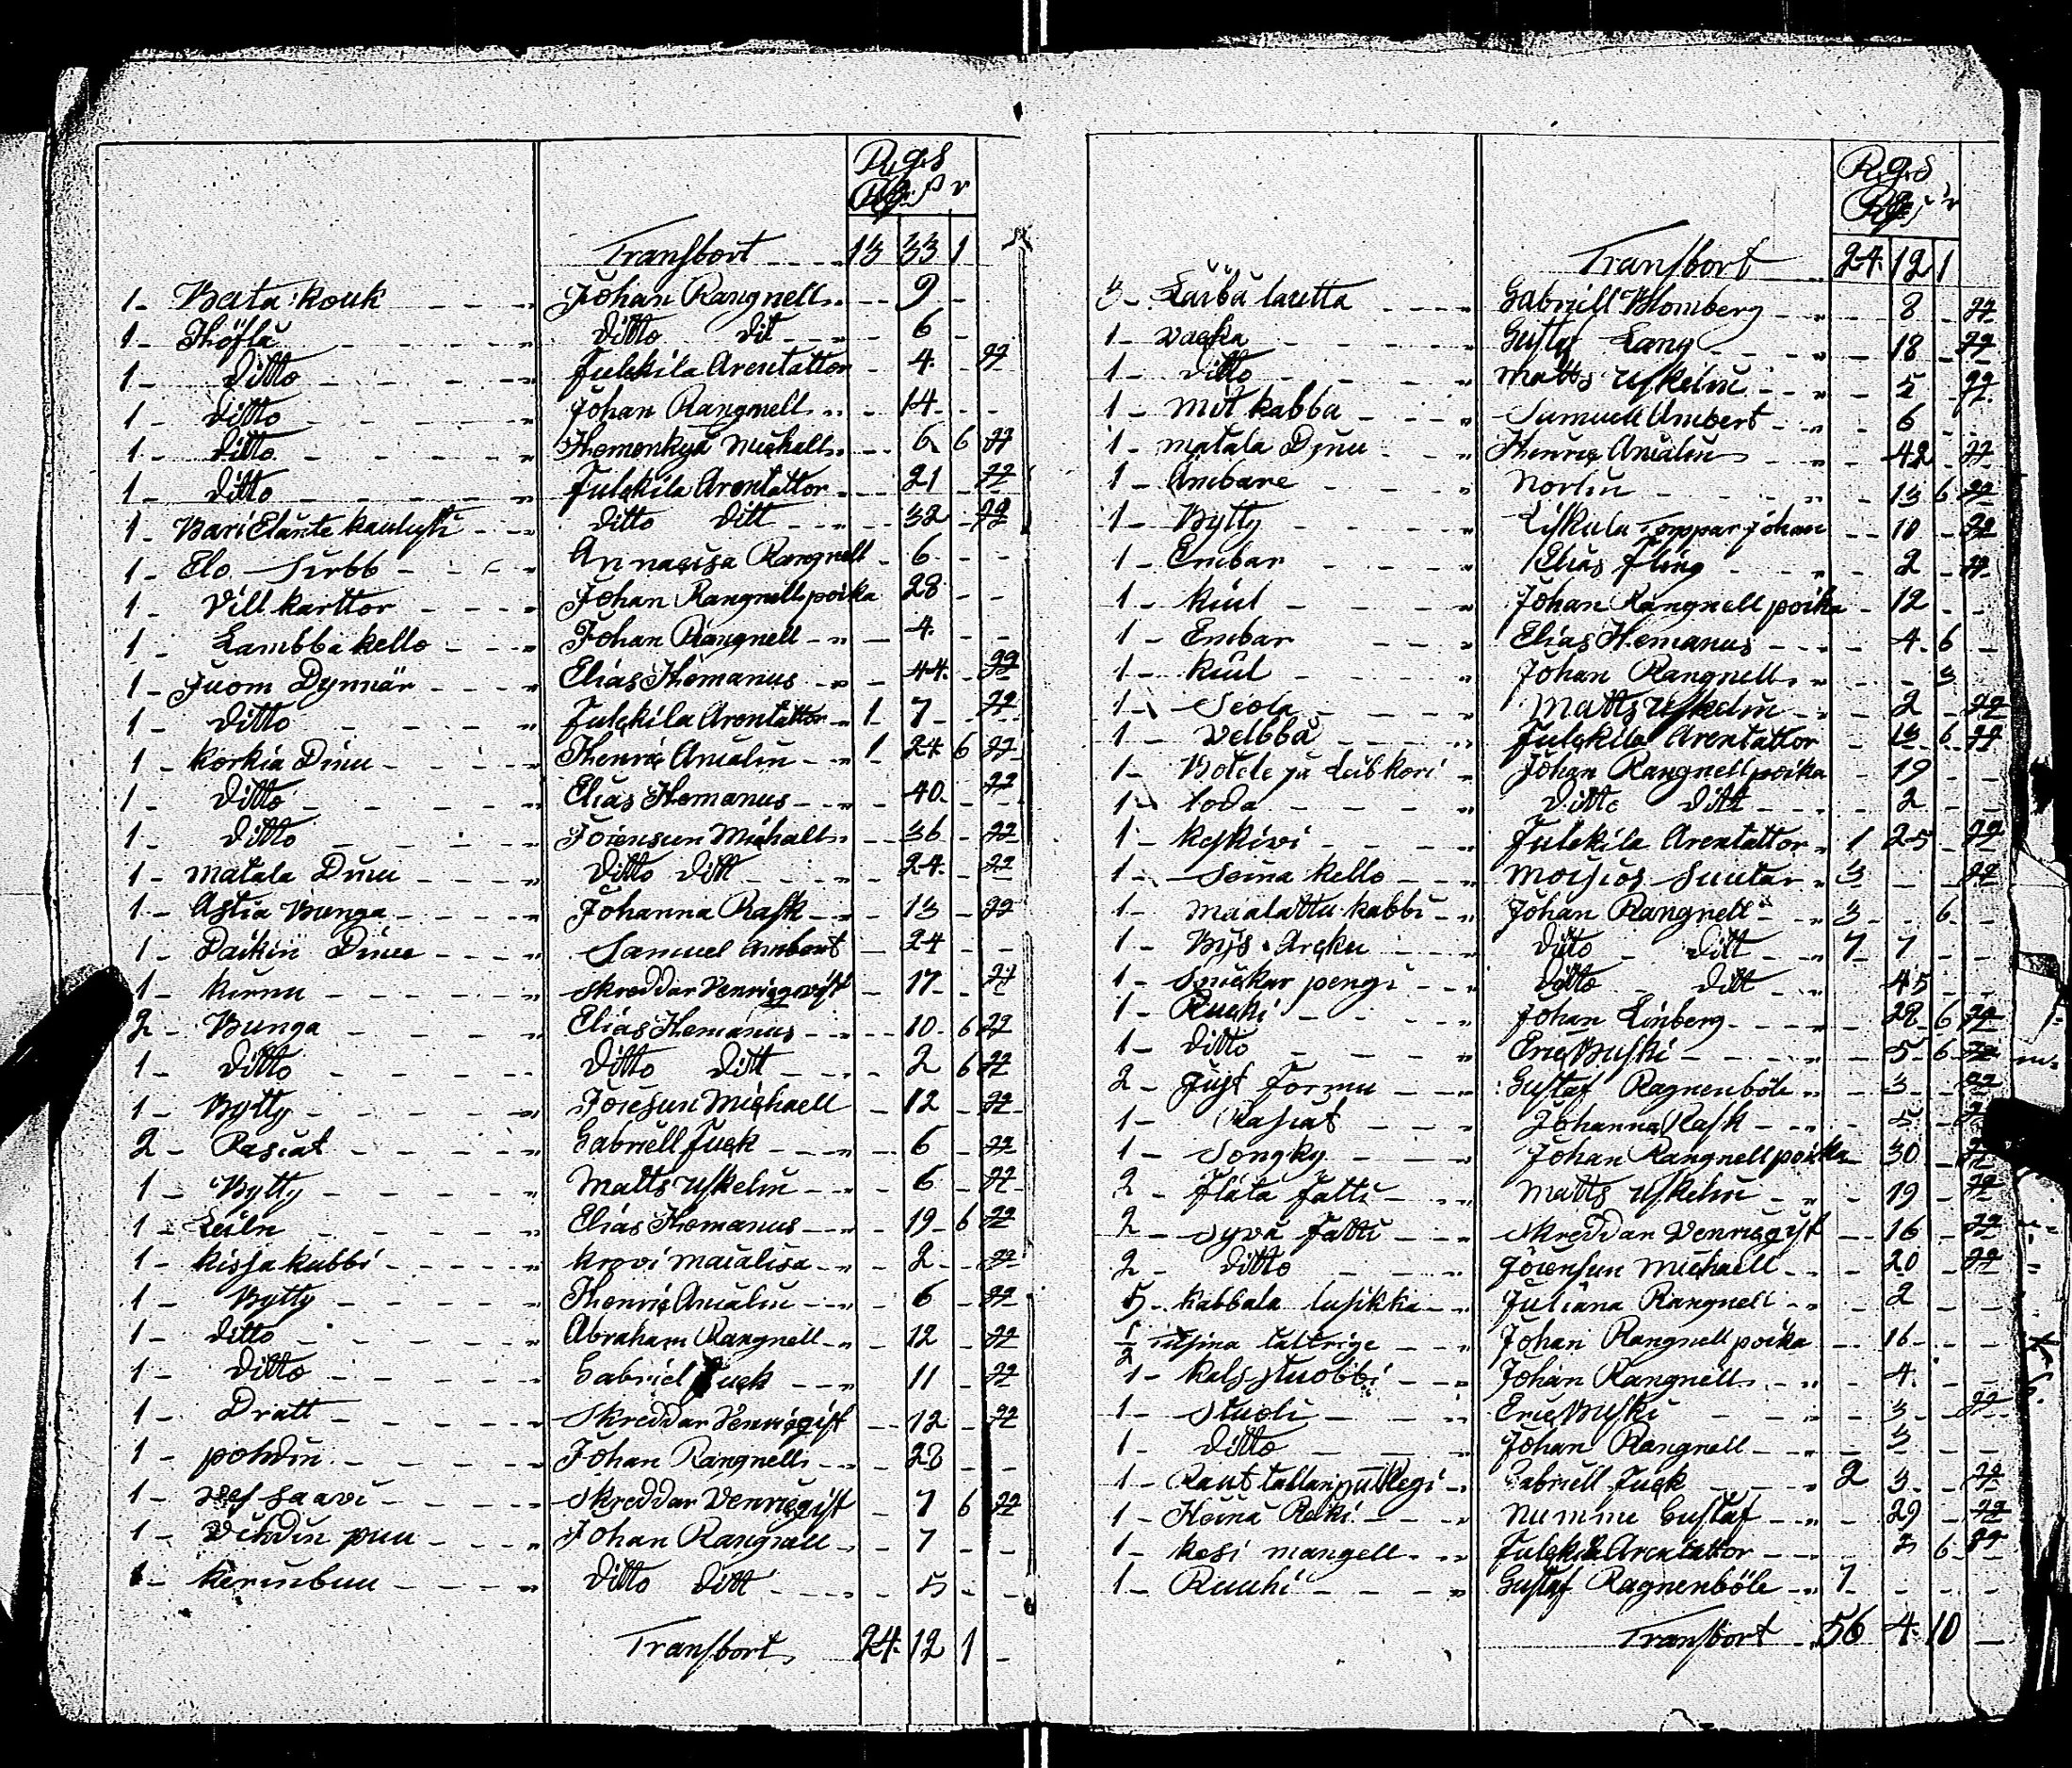 R.g.s
Rg. ß r
Transbort 13 33 1
1 - Bata kouk - - - Johan Rangnell - 9 -
1 - Höfla - - - Ditto Dit - 6 -
1 - Ditto - - - Julckila Arentattor - 4 - 22
1 - Ditto - - - Johan Rangnell - 14 - -
1 - Ditto - - - Hemonkyä Michall - 6 6 22
1 - Ditto - - - Julckila Arentattor - 21 - 22
1 - Bari Elänte - - - Ditto Ditt - 32 - 22
1 - Elo Sirbb - - - Annacisa Rangnell - 6 - -
1 - Vill karttor - - - Johan Rangnell poika 28 - -
1 - Lambba kello - - - Johan Rangnell - 4 - -
1 - Juom Dynnär - - - Elias Hemanus - 44 - 22
1 - Ditto - - - Julckila Arentattor - 1 7 - 22
1 - korkia Dinu - - - Henric Amalin - 1 24 6 22
1 - Ditto - - - Elias Hemanus - 40 - 22
1 - Ditto - - - Joiensuu Michall - 36 - 22
1 - matala Dinu - - - Ditto Ditt - 24 - 22
1 - Astia Bunga - - - Johanna Rask - 13 - 22
1 - Daikin Dinu - - - Samuel Ambert - 24 - -
1 - kirnu - - - Skreddar Venricqvist - 17 - 22
2 - Bunga - - - Elias Hemanus - 10 6 22
1 - Ditto - - - Ditto Ditt - 2 6 22
1 - Bytty - - - Joiesuu Michaell - 12 - 22
2 - Rasiat - - - Gabriell Juck - 6 - 22
1 - Bytty - - - Matts Uskelin - 6 - 22
1 - Leiln - - - Elias Hemanus - 19 6 22
1 - kissa kabbi - - - krovi maialisa - 2 - 22
1 - Bytty - - - Henric Amalin - 6 - 22
1 - Ditto - - - Abraham Rangnell - 12 - 22
1 - Ditto - - - Gabriel Juck - 11 - 22
1 - Dratt - - - Skreddar Venricqist - 12 - 22
1 - pohdin - - - Johan Rangnell - 28 - -
1 - ves saavi - - - Skreddar Venricqist - 7 6 22
1 - Vihdin puu - - - Johan Rangnell - 7 - -
1 - kerinbuu - - - Ditto Ditt - 5 - -
Transbort 24 12 1 -
R.g.s
Transbort 24 12 1
3 - Laiba lautta - - - Gabriell Blomberg - 8 - 22
1 - vacka - - - Gustaf Lang - 18 - 22
1 - Ditto - - - Matts Uskelin - 5 - 22
1 - mit kabba - - - Samuell Ambert - 6 - -
1 - matala Dynu - - - Henric Amalin - 42 - 22
1 - Ämbare - - - Norlin - 13 6 22
1 - Bytty - - - Liskula Torppar Johan - 10 - 22
1 - Embar - - - Elias Fling - 2 - 22
1 - kiul - - - Johan Rangnell poika - 12 - -
1 - Embar - - - Elias Hemanus - 4 6 -
1 - kiul - - - Johan Rangnell - - 3 -
1 - Seola - - - Matts Uskelin - 2 - 22
1 - Velbba - - - Julckila Arentattor - 13 6 22
1 - Botele ja Leibkori - Johan Rangnell poika - 19 - -
1 - loda - - - Ditto Ditt - 2 - -
1 - keskivi - - - Julckila Arentattor - 1 25 - 22
1 - Seina kello - - - moisios Suutar - 3 - - 22
1 - maalattu kabbi - Johan Rangnell - 3 - 6 -
1 - Bys Arcku - - - Ditto Ditt - 7 7 - -
1 - Snickar pengi - - Ditto Ditt - 45 - -
1 - Rucki - - - Johan Linberg - 22 6 22
1 - Ditto - - - Eric Buski - 5 6 22
2 - Just Formu - - - Gustaf Ragnenböle - 3 - 22
1 - Rasiat - - - Johanna Rask - 5 - 22
1 - Songky - - - Johan Rangnell poika - 30 - 22
2 - Flata Fatti - - - Matts Uskelin - 19 - 22
2 - Syvä Fatti - - - Skreddar Venricqist - 16 - 22
2 - Ditto - - - Joiensuu Michaell - 20 - 22
5 - kabbala lusikka - Juliana Rangnell - 2 - -
1/2 Tusina tallrige - - Johan Rangnell poika - 16 - -
1 - kals stuobbi - - Johan Rangnell - 4 - -
1 - Stuoli - - - Eric Buski - 3 - 22
1 - Ditto - - - Johan Rangnell - 3 - -
1 - Raut Regi - Gabriell Juck - 2 3 - 22
1 - Heinä Reki - - - Nummi Gustaf - 29 - 22
1 - kesi mangell - - Julckila Arentattor - 3 6 22
1 - Ruuhi - - - Gustaf Ragnenböle - 7 - - -
Transbort 56 4 10 -